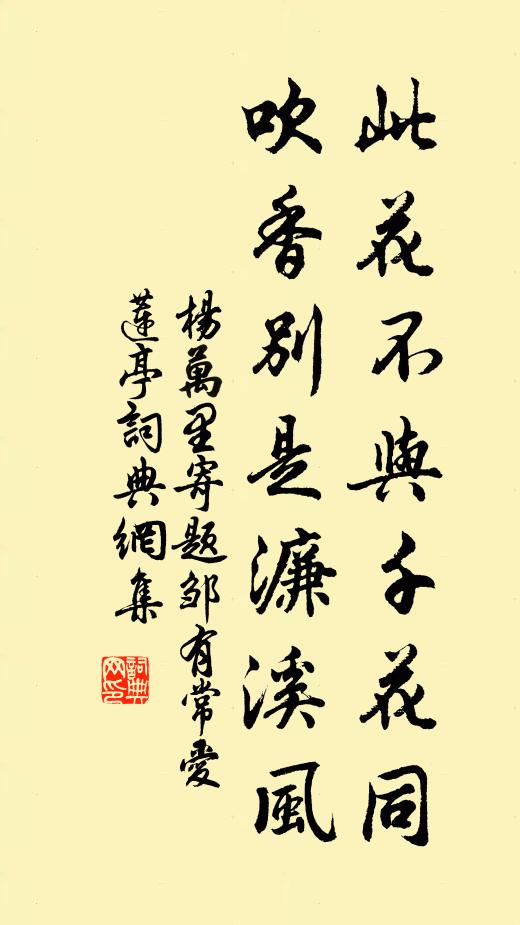 此花不與千花同
吹香別是濂溪風
楊萬里寄題邹有常愛
蓮亭詞典網集
詞典
网印